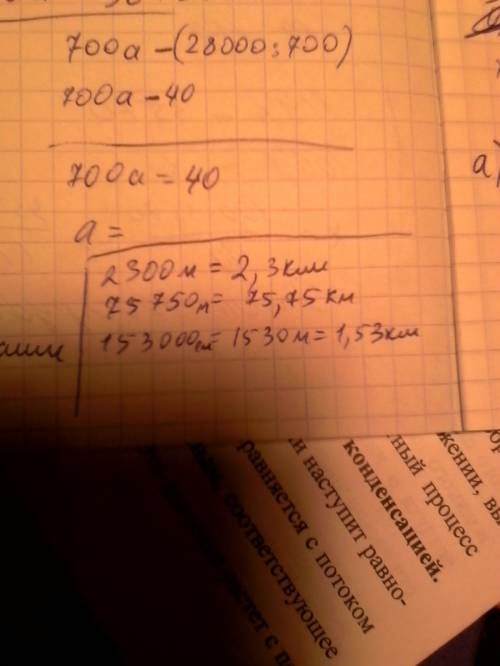 700a − (28000:700)
700a − 40
700a = 40
a =
2300м = 2,3 км
75750м = 75,75 км
153000см = 1530 м = 1,53 км
а)
тный процесс
конденсацией.
и наступит равно-
равняется с потоком
соответствующее